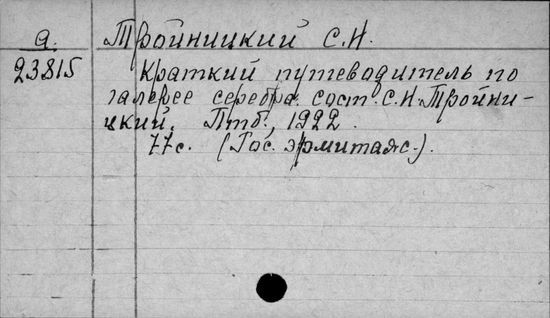 а. Тройницкий С.Н.
23815 Краткий путеводитель по
галерее серебра. сост. С.Н. Тройни-
цкий. Птб., 1922.
77с. (Гос. эрмитаж.).